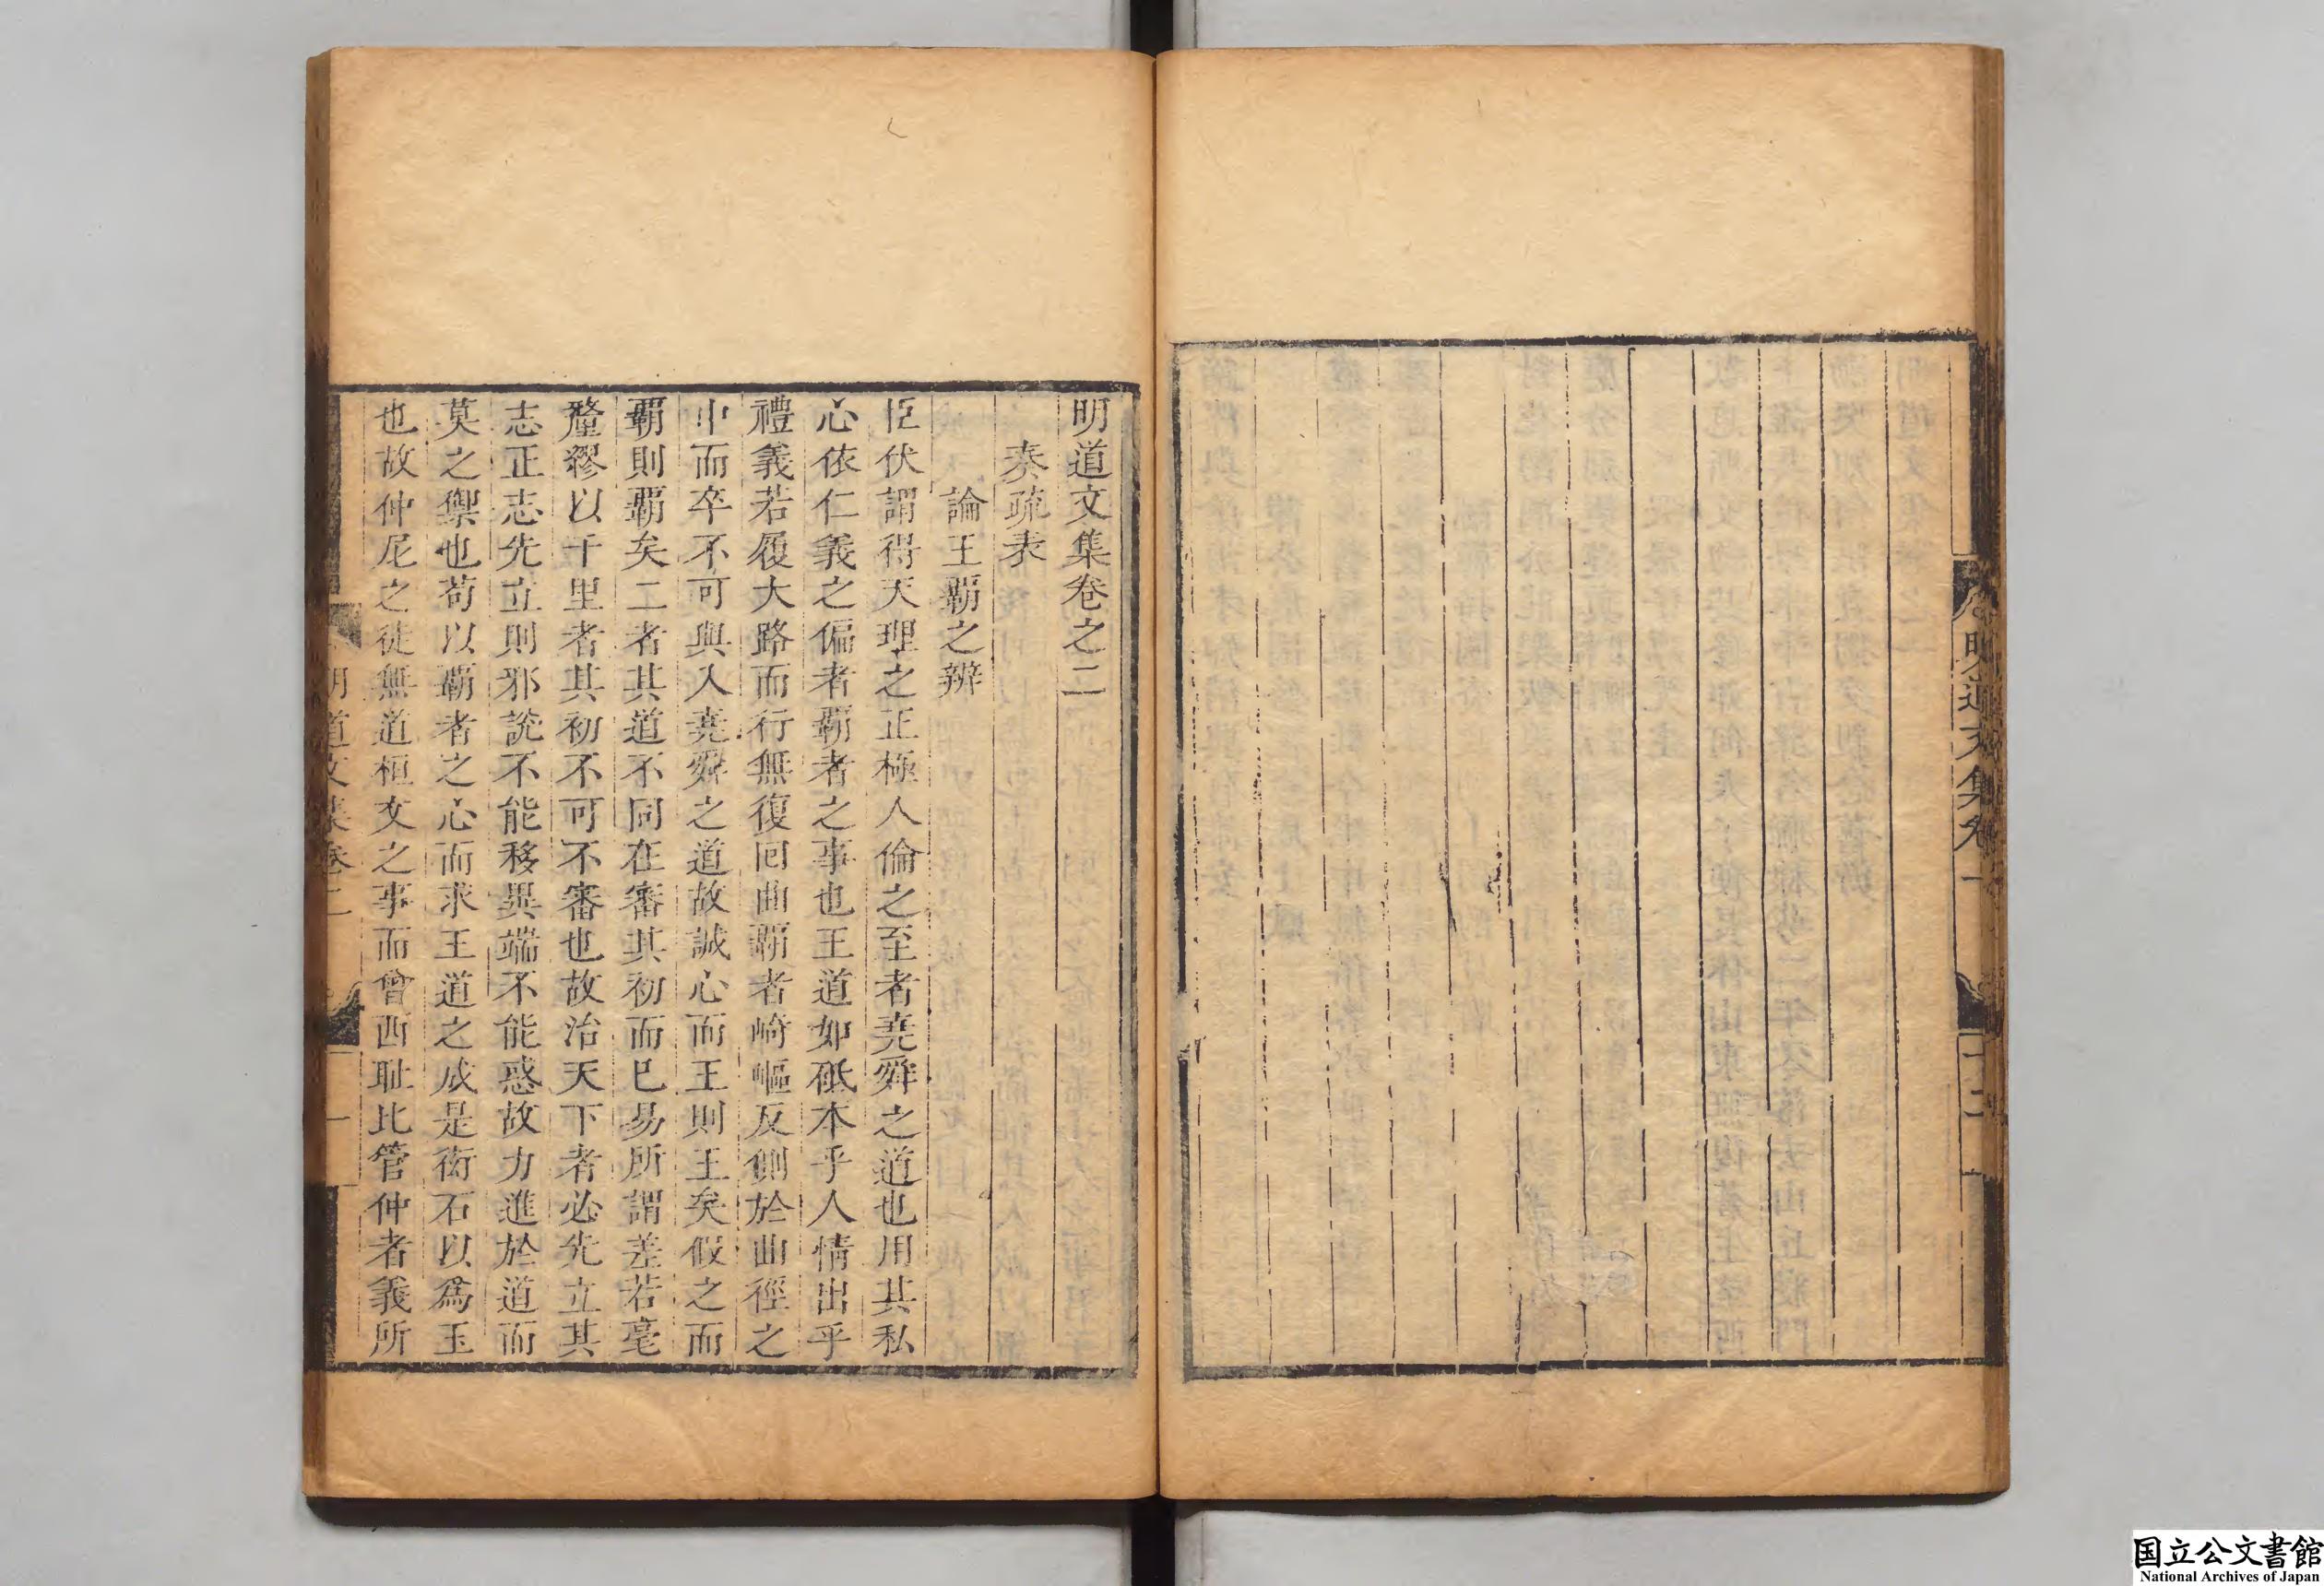 明道文集卷一
十二
明道文集卷之二
奏疏表
論王霸之辨
臣伏謂得天理之正極人倫之至者堯舜之道也用其私
心依仁義之偏者霸者之事也王道如砥本乎人情出乎
禮義若履大路而行無復回曲霸者崎嶇反側於曲徑之
中而卒不可與入堯舜之道故誠心而王則王矣假之而
霸則霸矣二者其道不同在審其初而已易所謂差若毫
釐繆以千里者其初不可不審也故治天下者必先立其
志正志先立則邪說不能移異端不能惑故力進於道而
莫之禦也苟以霸者之心而求王道之成是衒石以爲玉
也故仲尼之徒無道桓文之事而曾西耻比管仲者義所
明道文集卷二
一
国立公文書館
National Archives of Japan